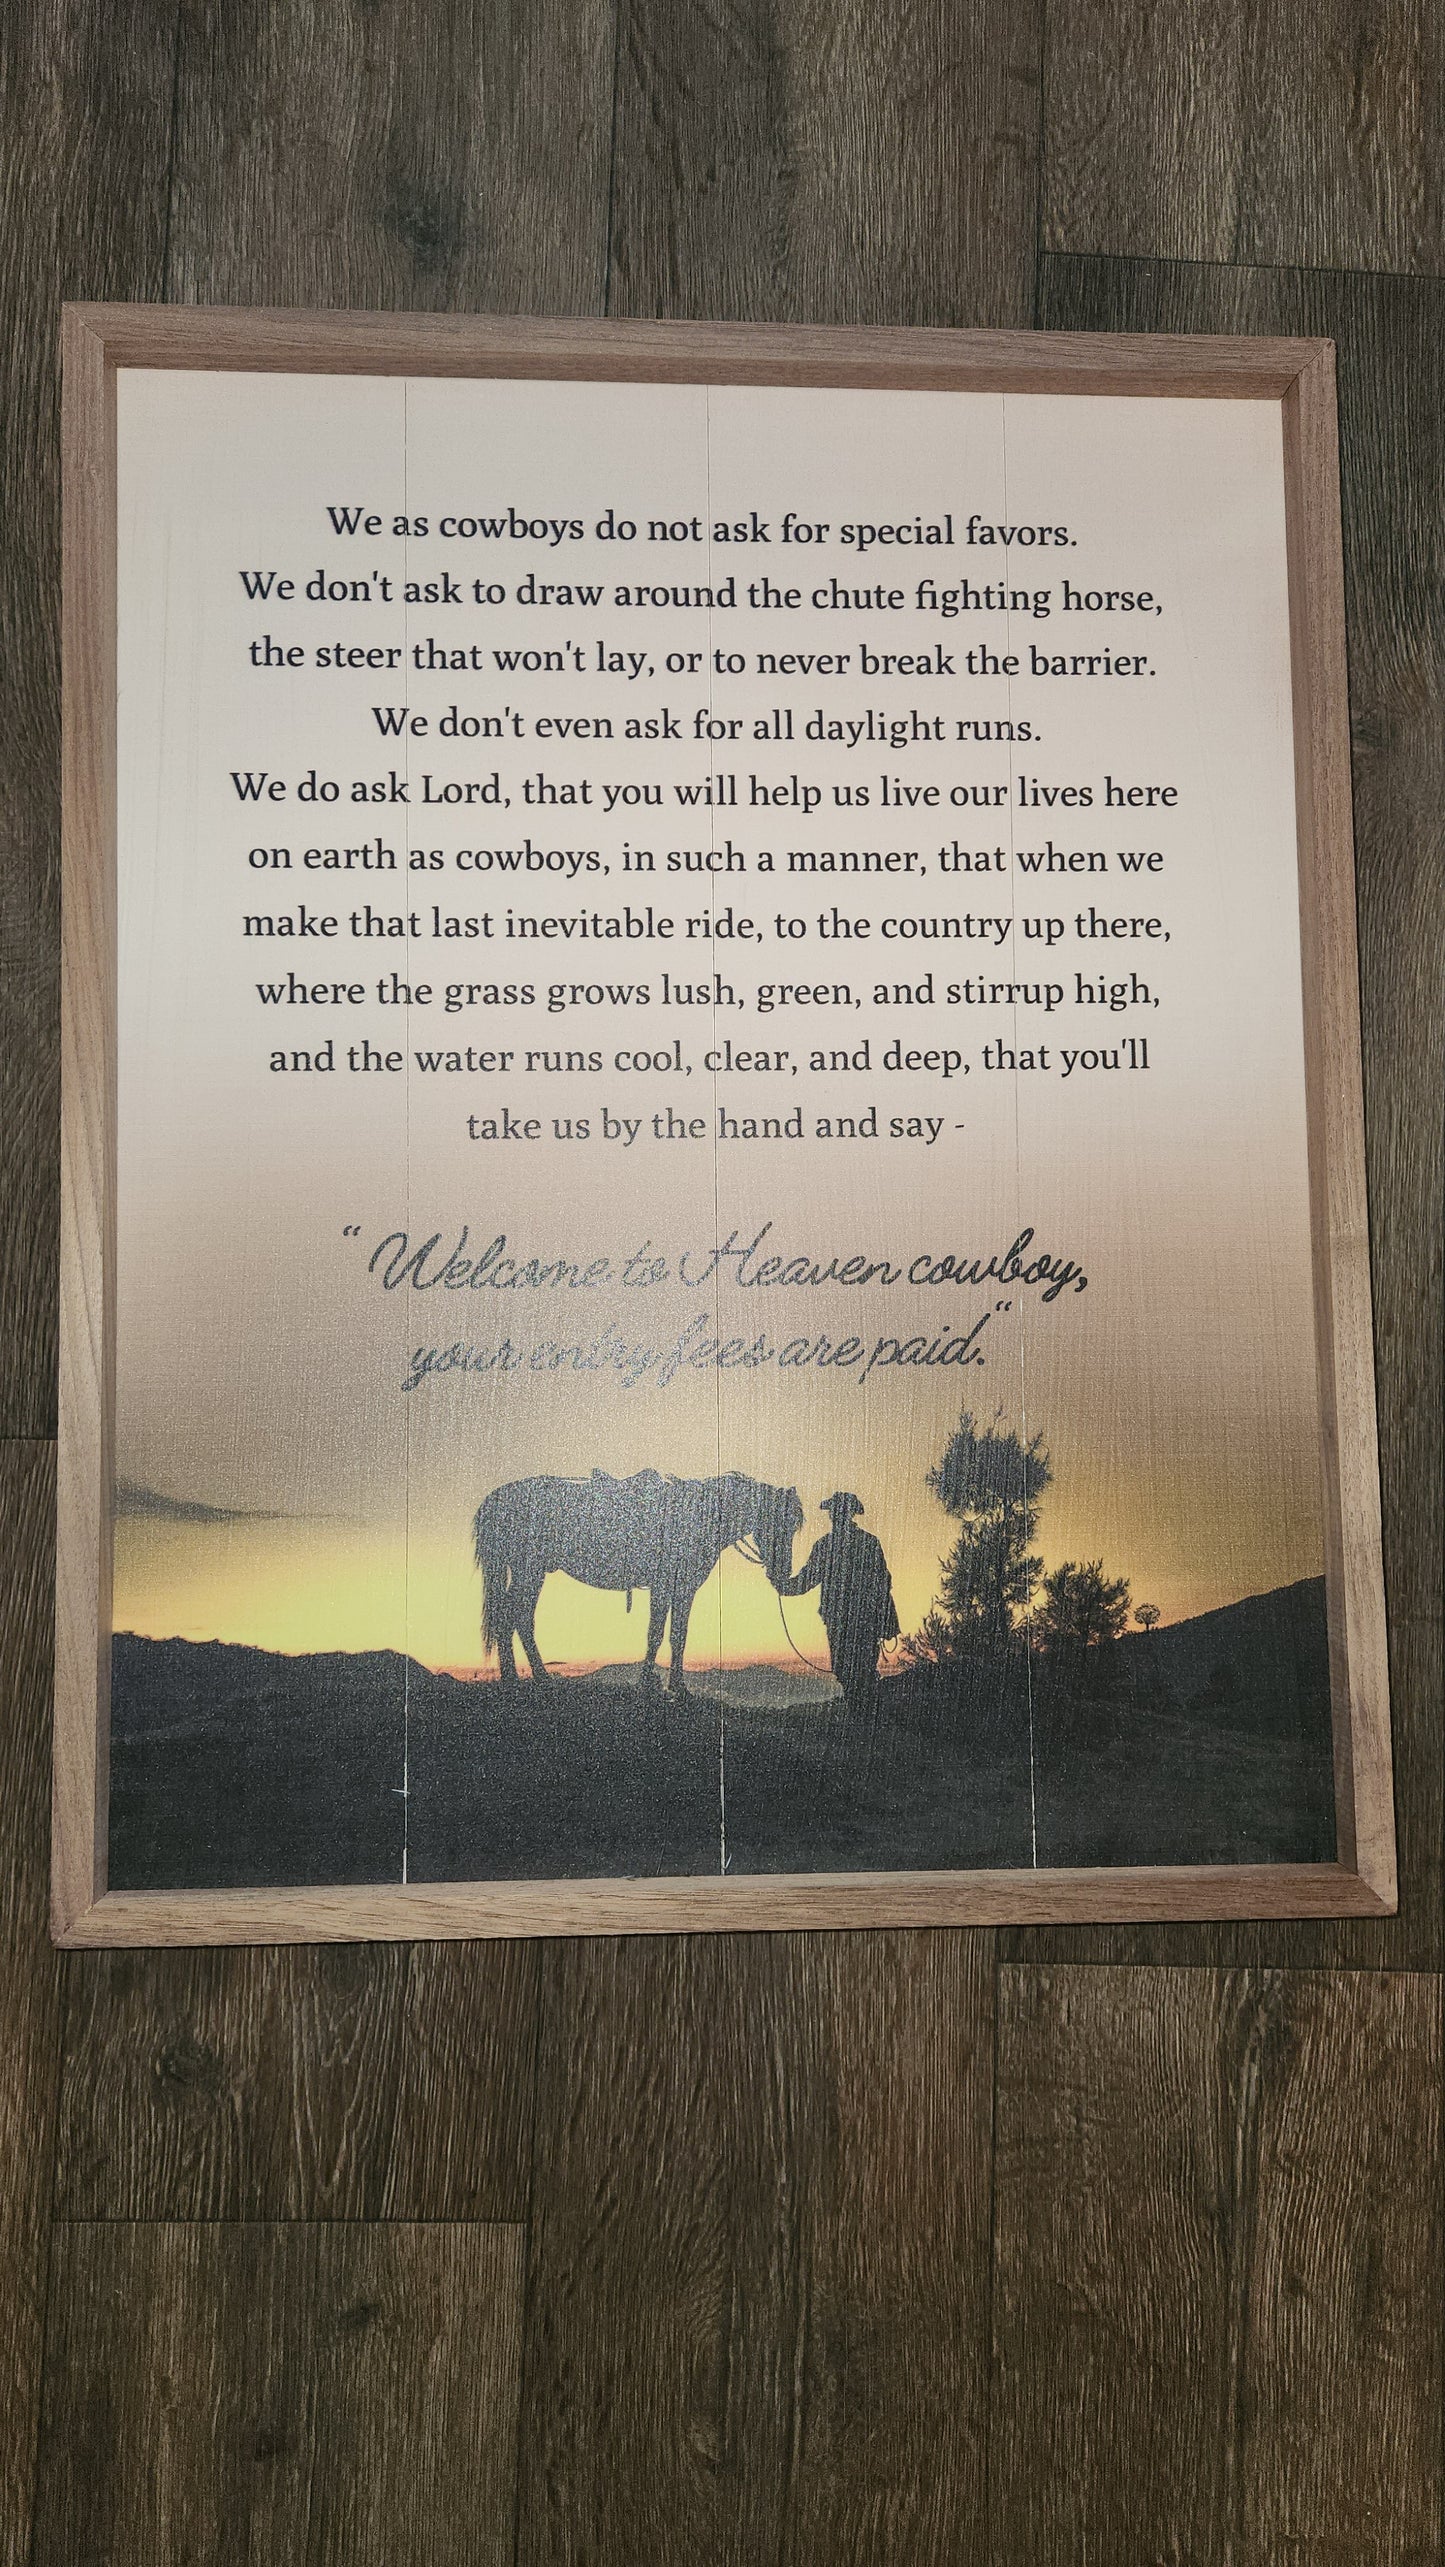 We as cowboys do not ask for special favors.
We don't ask to draw around the chute fighting horse,
the steer that won't lay, or to never break the barrier.
We don't even ask for all daylight runs.
We do ask Lord, that you will help us live our lives here
on earth as cowboys, in such a manner, that when we
make that last inevitable ride, to the country up there,
where the grass grows lush, green, and stirrup high,
and the water runs cool, clear, and deep, that you'll
take us by the hand and say -
“Welcome to Heaven cowboy,
your entry fees are paid.“